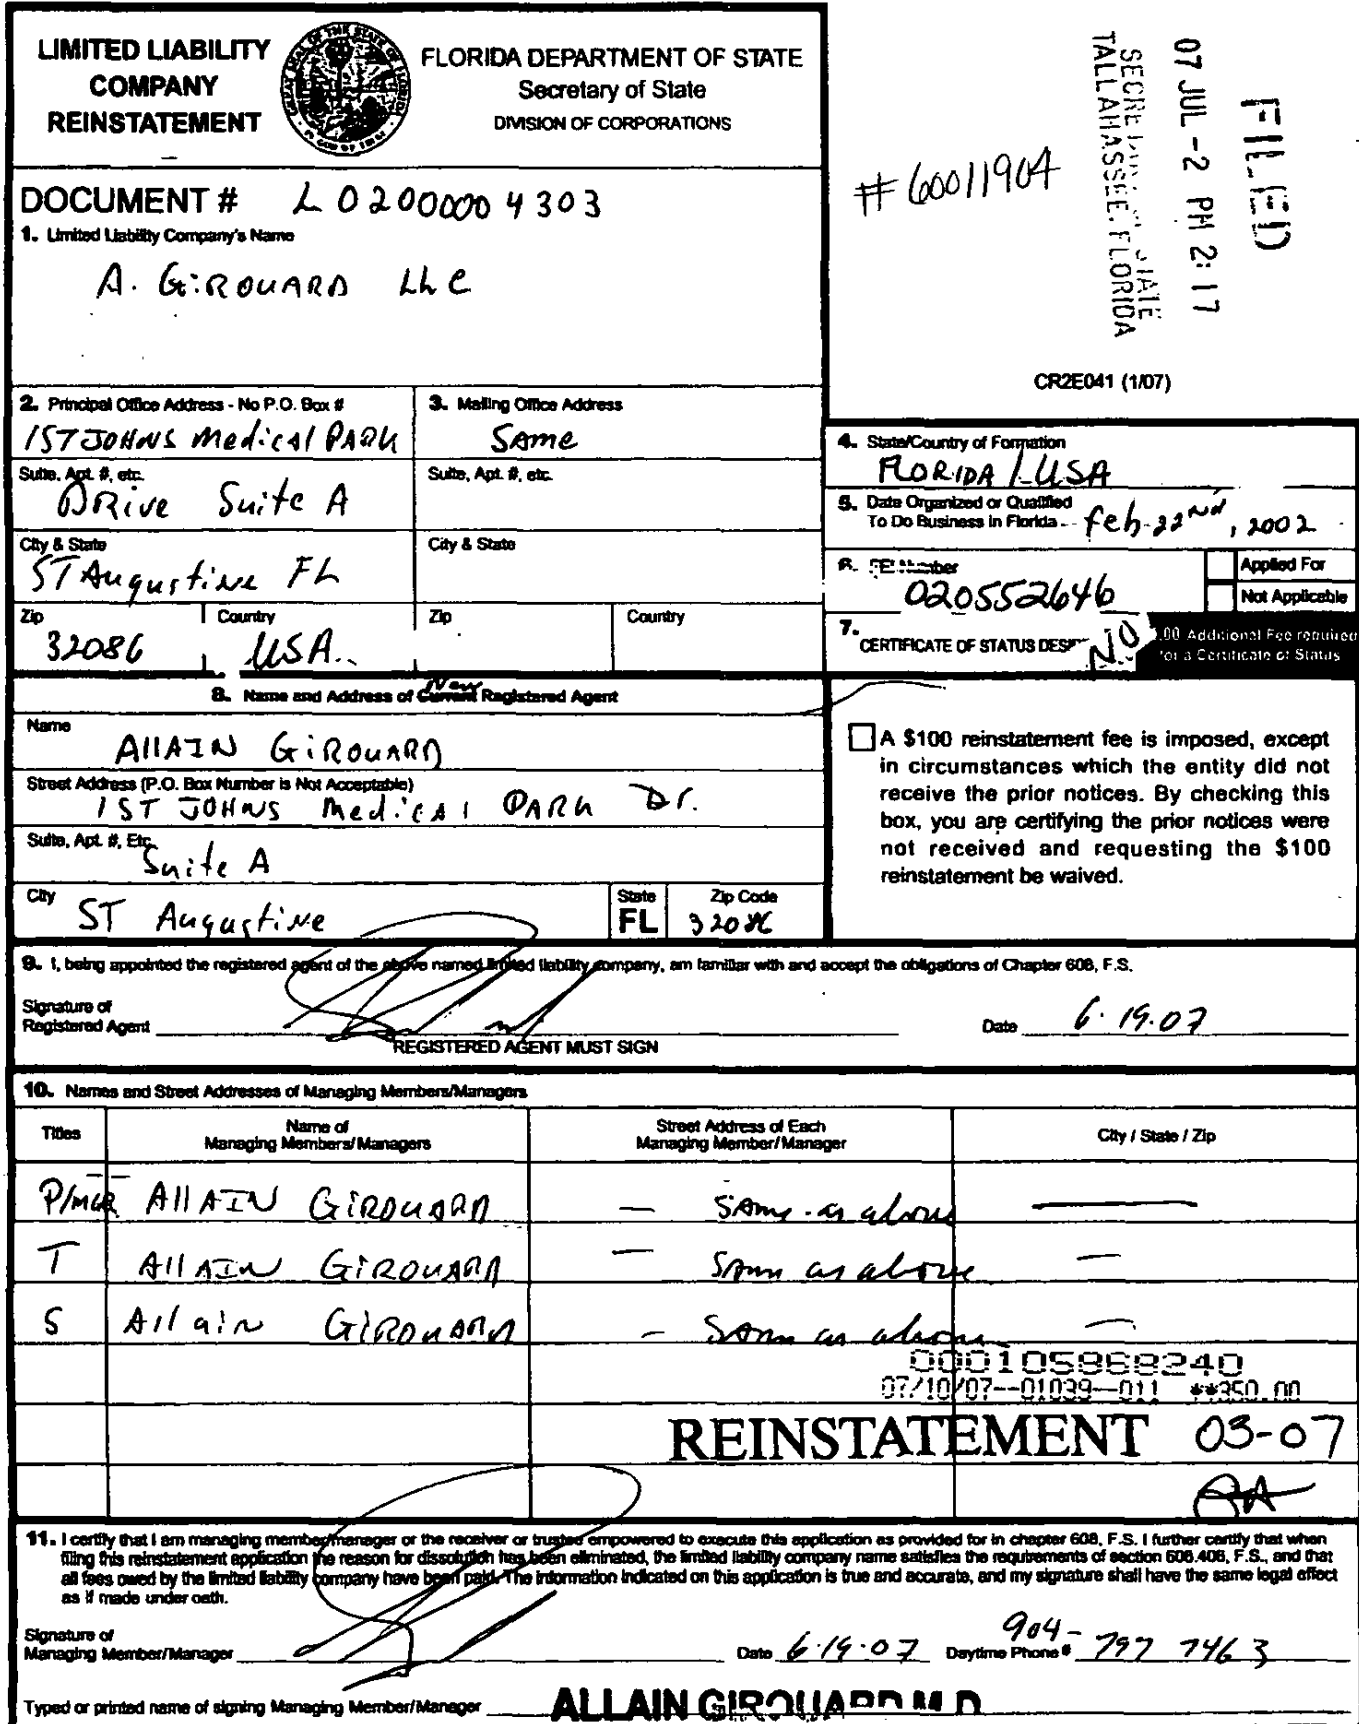 LIMITED LIABILITY
COMPANY
REINSTATEMENT
FLORIDA DEPARTMENT OF STATE
Secretary of State
DIVISION OF CORPORATIONS
FILED
07 JUL -2 PM 2:17
STATE
TALLAHASSEE, FLORIDA
#60011904
DOCUMENT # L02000004303
1. Limited Liability Company's Name
A. GiROUARD LLC
CR2E041 (1/07)
2. Principal Office Address - No P.O. Box #
1 ST JOHNS Medical PARK
3. Mailing Office Address
SAme
Suite, Apt. #, etc.
DRive Suite A
Suite, Apt. #, etc.
City & State
ST Augustine FL
City & State
Zip
32086
Country
USA
Zip
Country
4. State/Country of Formation
FLORIDA / USA
5. Date Organized or Qualified
To Do Business in Florida feb 22nd, 2002
6. FEI Number
020552646
Applied For
Not Applicable
7. CERTIFICATE OF STATUS NO
.00 Additional Fee required
for a Certificate of Status
8. Name and Address of Current New Registered Agent
Name
AllAIN GiROUARD
Street Address (P.O. Box Number is Not Acceptable)
1 ST JOHNS MedicAl PARK Dr.
Suite, Apt. #, Etc.
Suite A
City
ST Augustine
State
FL
Zip Code
32086
A $100 reinstatement fee is imposed, except
in circumstances which the entity did not
receive the prior notices. By checking this
box, you are certifying the prior notices were
not received and requesting the $100
reinstatement be waived.
9. I, being appointed the registered agent of the above named limited liability company, am familiar with and accept the obligations of Chapter 608, F.S.
Signature of
Registered Agent
Date 6.19.07
REGISTERED AGENT MUST SIGN
10. Names and Street Addresses of Managing Members/Managers
Titles
Name of
Managing Members/Managers
Street Address of Each
Managing Member/Manager
City / State / Zip
P/MGR AllAIN GiROUARD — SAme as above —
T AllAIN GiROUARD — SAme as above —
S Allain GiROUARD — SAme as above —
000105968240
07/10/07--01039--011 **350.00
REINSTATEMENT 03-07
11. I certify that I am managing member/manager or the receiver or trustee empowered to execute this application as provided for in chapter 608, F.S. I further certify that when
filing this reinstatement application the reason for dissolution has been eliminated, the limited liability company name satisfies the requirements of section 608.406, F.S., and that
all fees owed by the limited liability company have been paid. The information indicated on this application is true and accurate, and my signature shall have the same legal effect
as if made under oath.
Signature of
Managing Member/Manager
Date 6.19.07 Daytime Phone # 904-797 7463
Typed or printed name of signing Managing Member/Manager ALLAIN GIROUARD M.D.